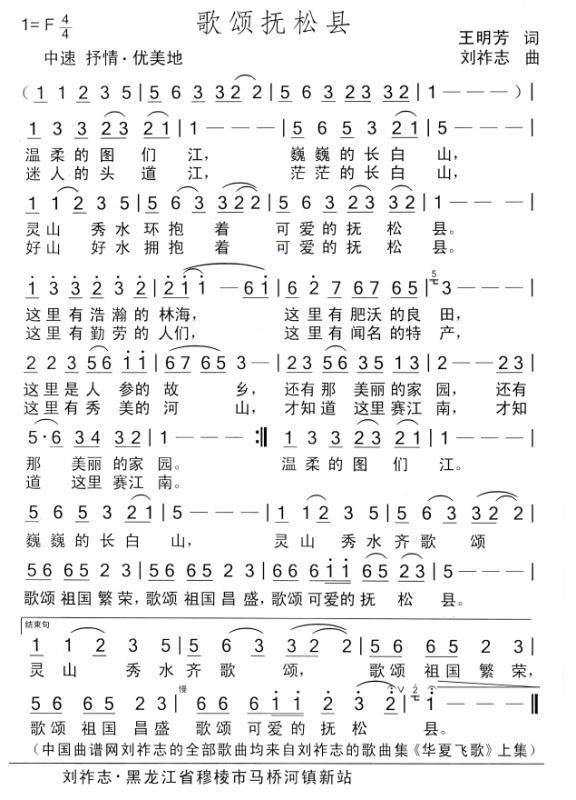 歌颂抚松县
1=F 4/4
王明芳 词
中速 抒情·优美地
刘祚志 曲
(1 1 2 3 5 | 5 6 3 3 2 2 | 5 6 3 2 3 2 | 1 — — — ) |
1 3 3 2 3 2 1 | 1 — — — | 5 6 5 3 2 1 | 5 — — — |
温柔的图们江, 巍巍的长白山,
迷人的头道江, 茫茫的长白山,
1 1 2 3 5 | 5 6 3 3 2 2 | 5 6 3 2 3 2 | 1 — — — |
灵山秀水环抱着 可爱的抚松县。
好山好水拥抱着 可爱的抚松县。
1 3 2 3 2 3 2 | 2 1 1 — 6 1 | 6 2 7 6 7 6 5 | 5 3 — — — |
这里有浩瀚的林海, 这里有肥沃的良田,
这里有勤劳的人们, 这里有闻名的特产,
2 2 3 5 6 1 1 | 6 7 6 5 3 — | 2 3 5 6 5 3 5 | 2 — — 2 3 |
这里是人参的故乡, 还有那美丽的家园, 还有
这里有秀美的河山, 才知道这里赛江南, 才知
5 · 6 3 4 3 2 | 1 — — — :‖ 1 3 3 2 3 2 1 | 1 — — — |
那美丽的家园。 温柔的图们江。
道这里赛江南。
5 6 5 3 2 1 | 5 — — — | 1 1 2 3 5 | 5 6 3 3 2 2 |
巍巍的长白山, 灵山秀水齐歌颂
5 6 6 5 2 3 | 5 6 6 5 2 3 | 6 6 6 1 1 6 5 2 3 | 1 — — — |
歌颂祖国繁荣,歌颂祖国昌盛,歌颂可爱的抚松县。
结束句
1 1 2 3 | 5 6 3 3 2 2 | 5 6 6 5 2 3 |
灵山秀水齐歌颂, 歌颂祖国繁荣,
慢
5 6 6 5 2 3 | 6 6 6 1 1 2 3 2 ∨ | 2 1 — — — ‖
歌颂祖国昌盛 歌颂可爱的抚松县。
(中国曲谱网刘祚志的全部歌曲均来自刘祚志的歌曲集《华夏飞歌》上集)
刘祚志·黑龙江省穆棱市马桥河镇新站